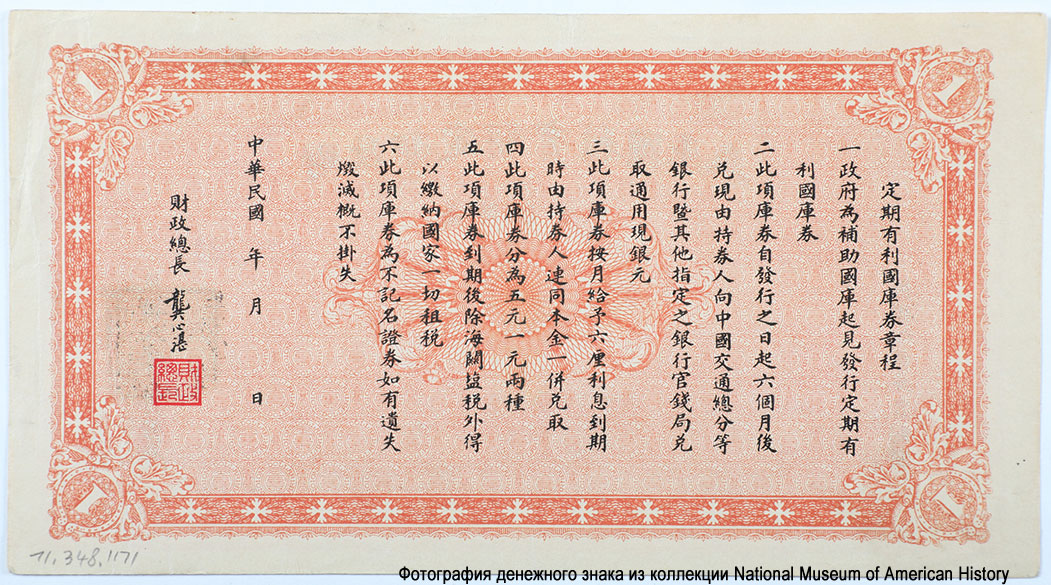 定期有利國庫券章程
一政府為補助國庫起見發行定期有
利國庫券
二此項庫券自發行之日起六個月後
兌現由持券人向中國交通總分等
銀行暨其他指定之銀行官錢局兌
取通用現銀元
三此項庫券按月給予六厘利息到期
時由持券人連同本金一併兌取
四此項庫券分為五元一元兩種
五此項庫券到期後除海關鹽稅外得
以繳納國家一切租稅
六此項庫券為不記名證券如有遺失
燬滅概不掛失
中華民國 年 月 日
財政總長 龔心湛
財政總長
1
1
1
1
71.348.1171
Фотография денежного знака из коллекции National Museum of American History